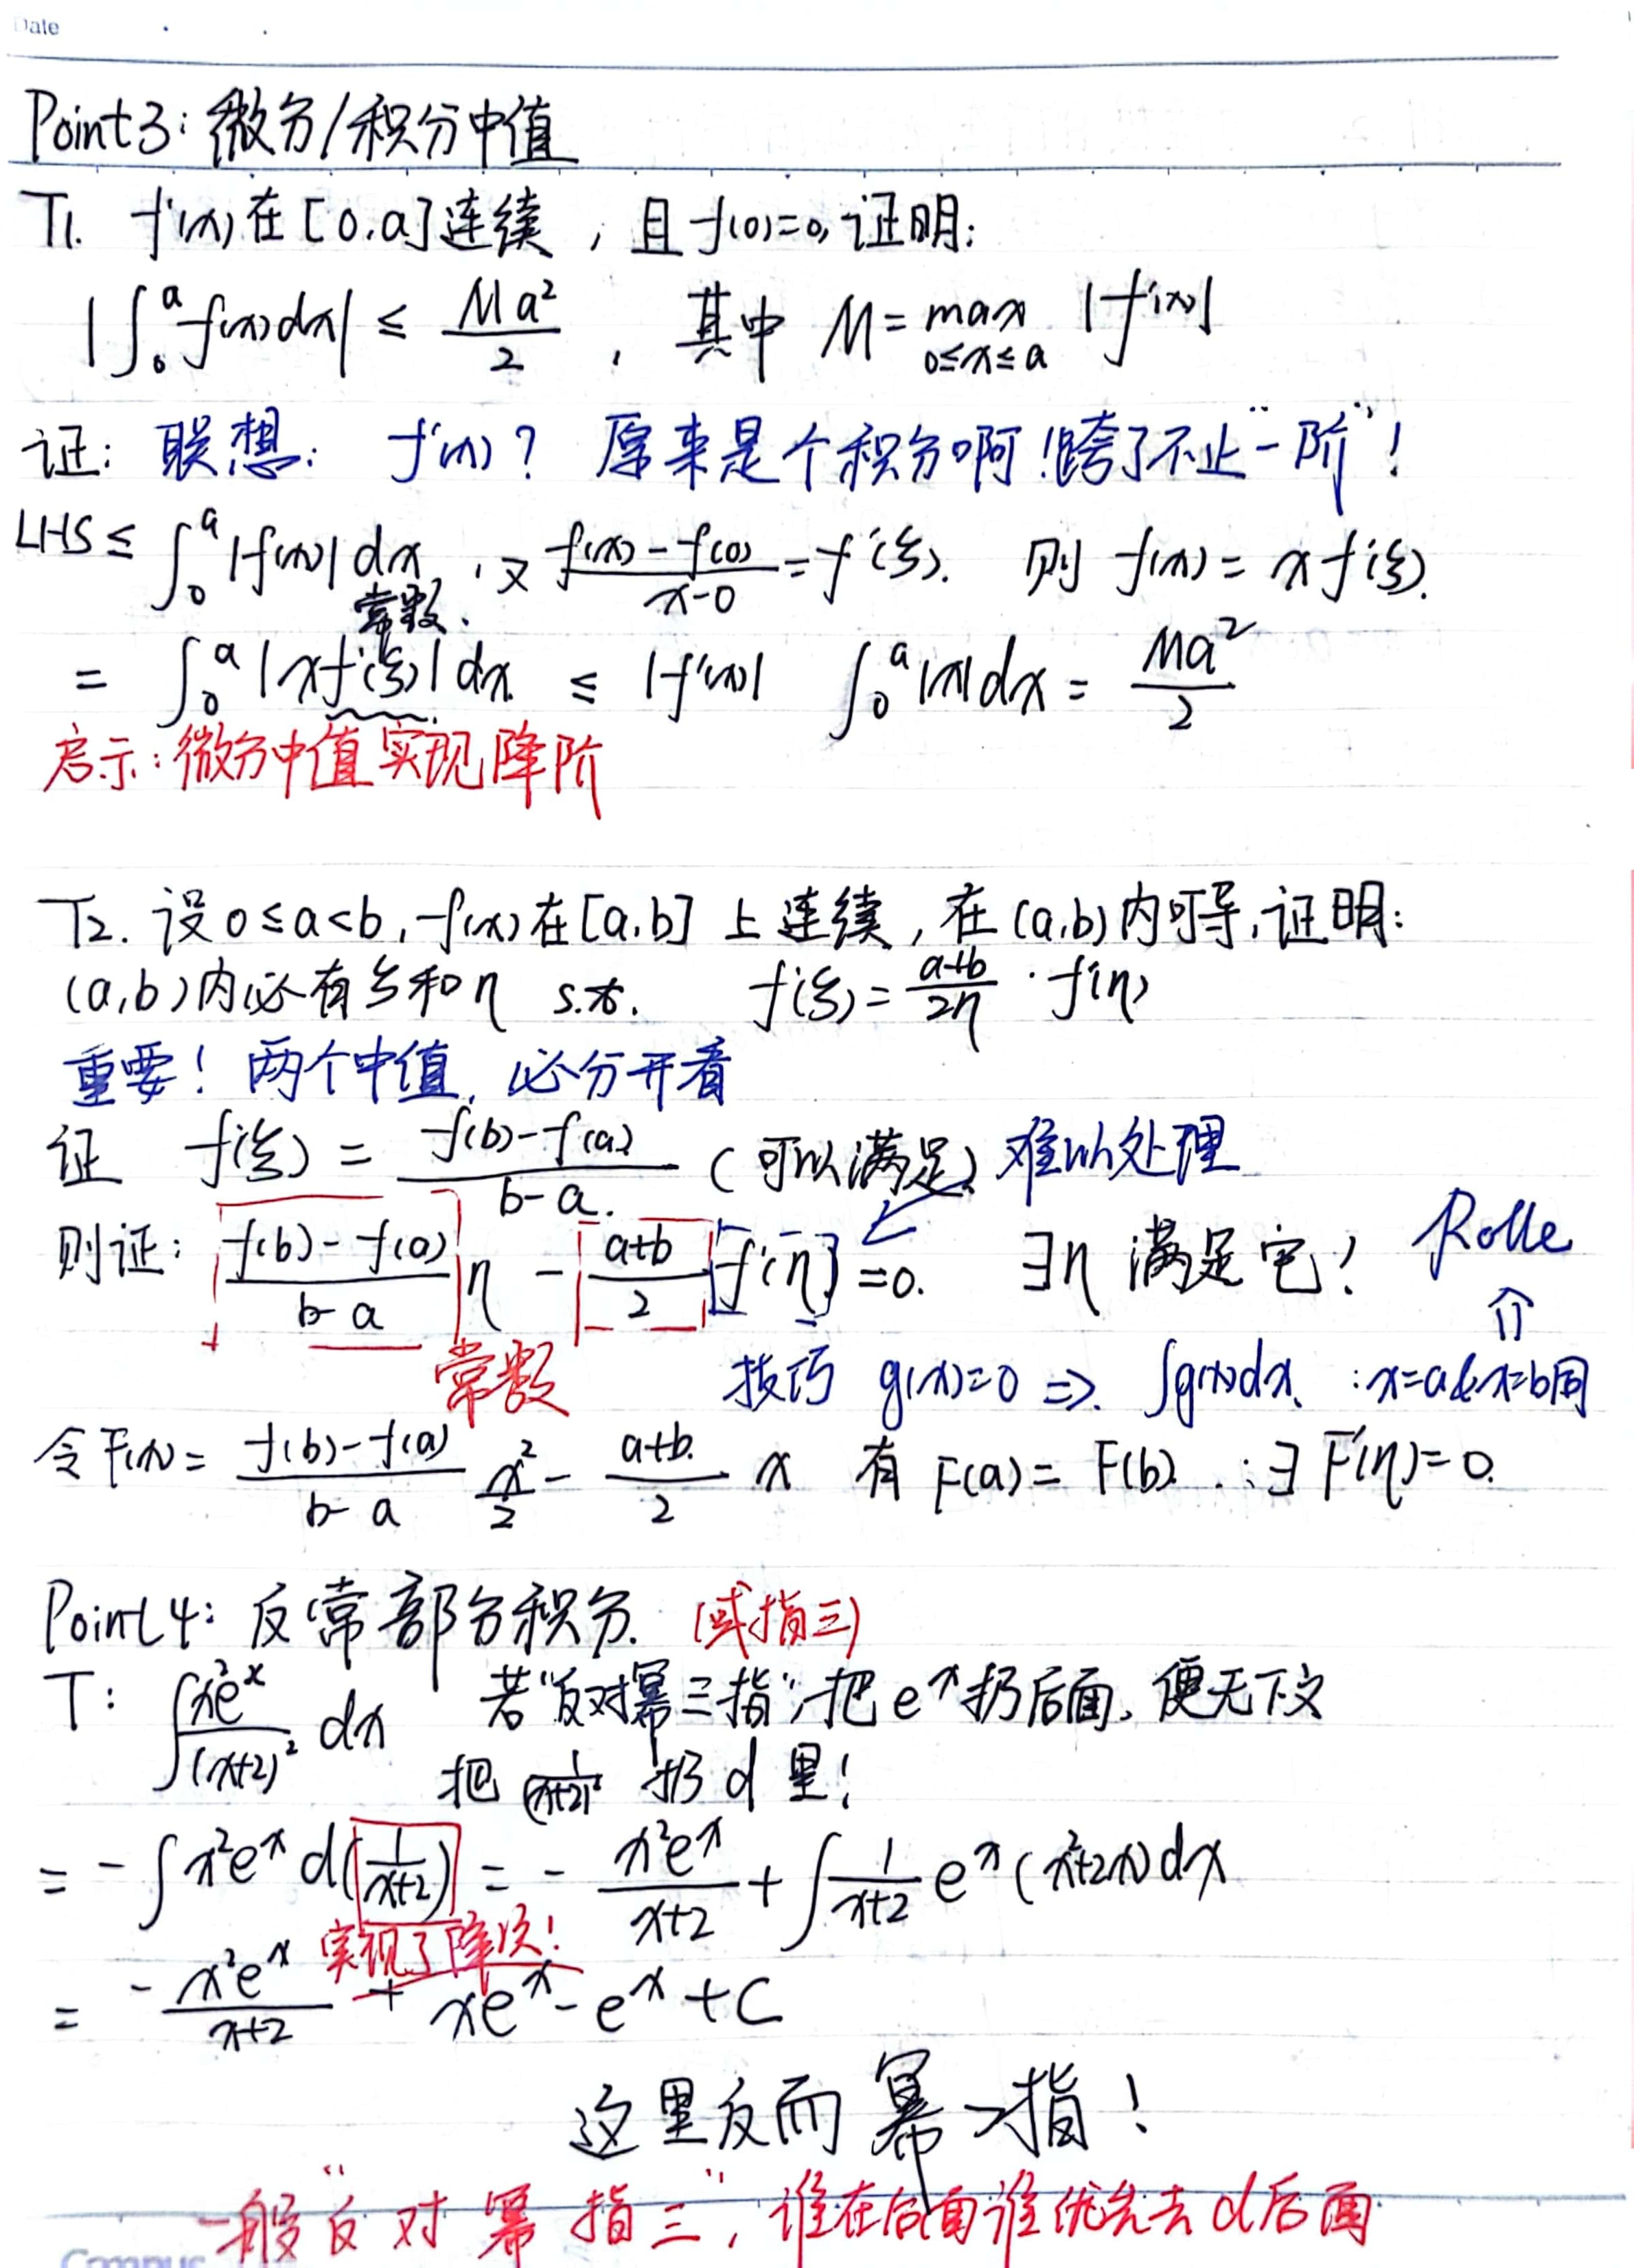 Date
Point3: 微分/积分中值
T1. f'(x)在[0,a]连续，且f(0)=0,证明:
|∫₀ᵃ f(x)dx| ≤ Ma²/2 , 其中 M = max_{0≤x≤a} |f'(x)|
证: 联想: f'(x)? 原来是个积分啊!跨了不止"一阶"!
LHS ≤ ∫₀ᵃ |f(x)| dx , 又 (f(x)-f(0))/(x-0) = f'(ξ). 则 f(x) = xf'(ξ).
常数.
= ∫₀ᵃ |xf'(ξ)| dx ≤ |f'(x)| ∫₀ᵃ |x|dx = Ma²/2
启示:微分中值实现降阶
T2. 设0≤a<b, f(x)在[a,b]上连续,在(a,b)内可导,证明:
(a,b)内必有ξ和η s.t. f'(ξ) = (a+b)/(2η) · f'(η)
重要! 两个中值,必分开看
证 f'(ξ) = (f(b)-f(a))/(b-a). (可以满足) 难以处理
则证: (f(b)-f(a))/(b-a) η - (a+b)/2 f'(η) = 0. ∃η 满足它! Rolle
⇑
常数 技巧 g(x)=0 ⇒ ∫g(x)dx, :x=a&x=b同
令F(x) = (f(b)-f(a))/(b-a) x²/2 - (a+b)/2 x 有 F(a) = F(b) ∴∃ F'(η)=0.
Point4: 反常部分积分. (或指三)
T: ∫ x²eˣ/(x+2)² dx 若"反对幂三指",把eˣ扔后面,便无下文
把 1/(x+2)² 扔d里!
= -∫x²eˣ d(1/(x+2)) = - x²eˣ/(x+2) + ∫ 1/(x+2) eˣ(x²+2x)dx
实现了降次!
= - x²eˣ/(x+2) + xeˣ - eˣ + C
这里反而 幂→指!
一般"反对幂指三",谁在后面谁优先去d后面
Campus